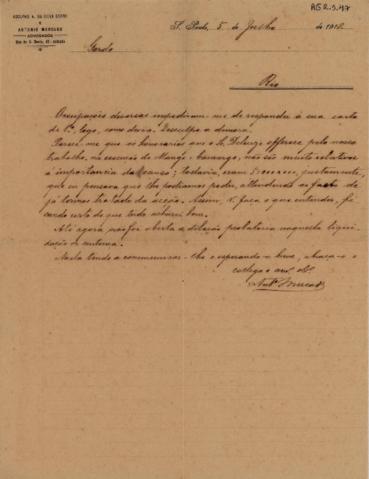 AG2.5.47
ADOLPHO A. DA SILVA GORDO
E
ANTONIO MERCADO
ADVOGADOS
S. Paulo, 5 de Julho de 1918.
Gordo
Rio
Occupações diversas impediram-me de responder á sua carta
de 1º logo, como devia. Desculpe a demora.
Parece-me que os honorarios que o Sr. offerece pelo nosso
trabalho, na rescisão de, não são muito relativos
á importancia da causa; todavia, eram justamente,
que eu pensava que lhe podiamos pedir, attendendo ao facto de
já termos tratado da acção. Assim, V. faça o que entender, fi-
cando certo de que tudo acharei bom.
Até agora não foi aberta a dilação probatoria naquella liqui-
dação de sentença.
Nada tendo a communicar-lhe e esperando-o breve, abraça-o o
collega e amº obº
Antº Mercado